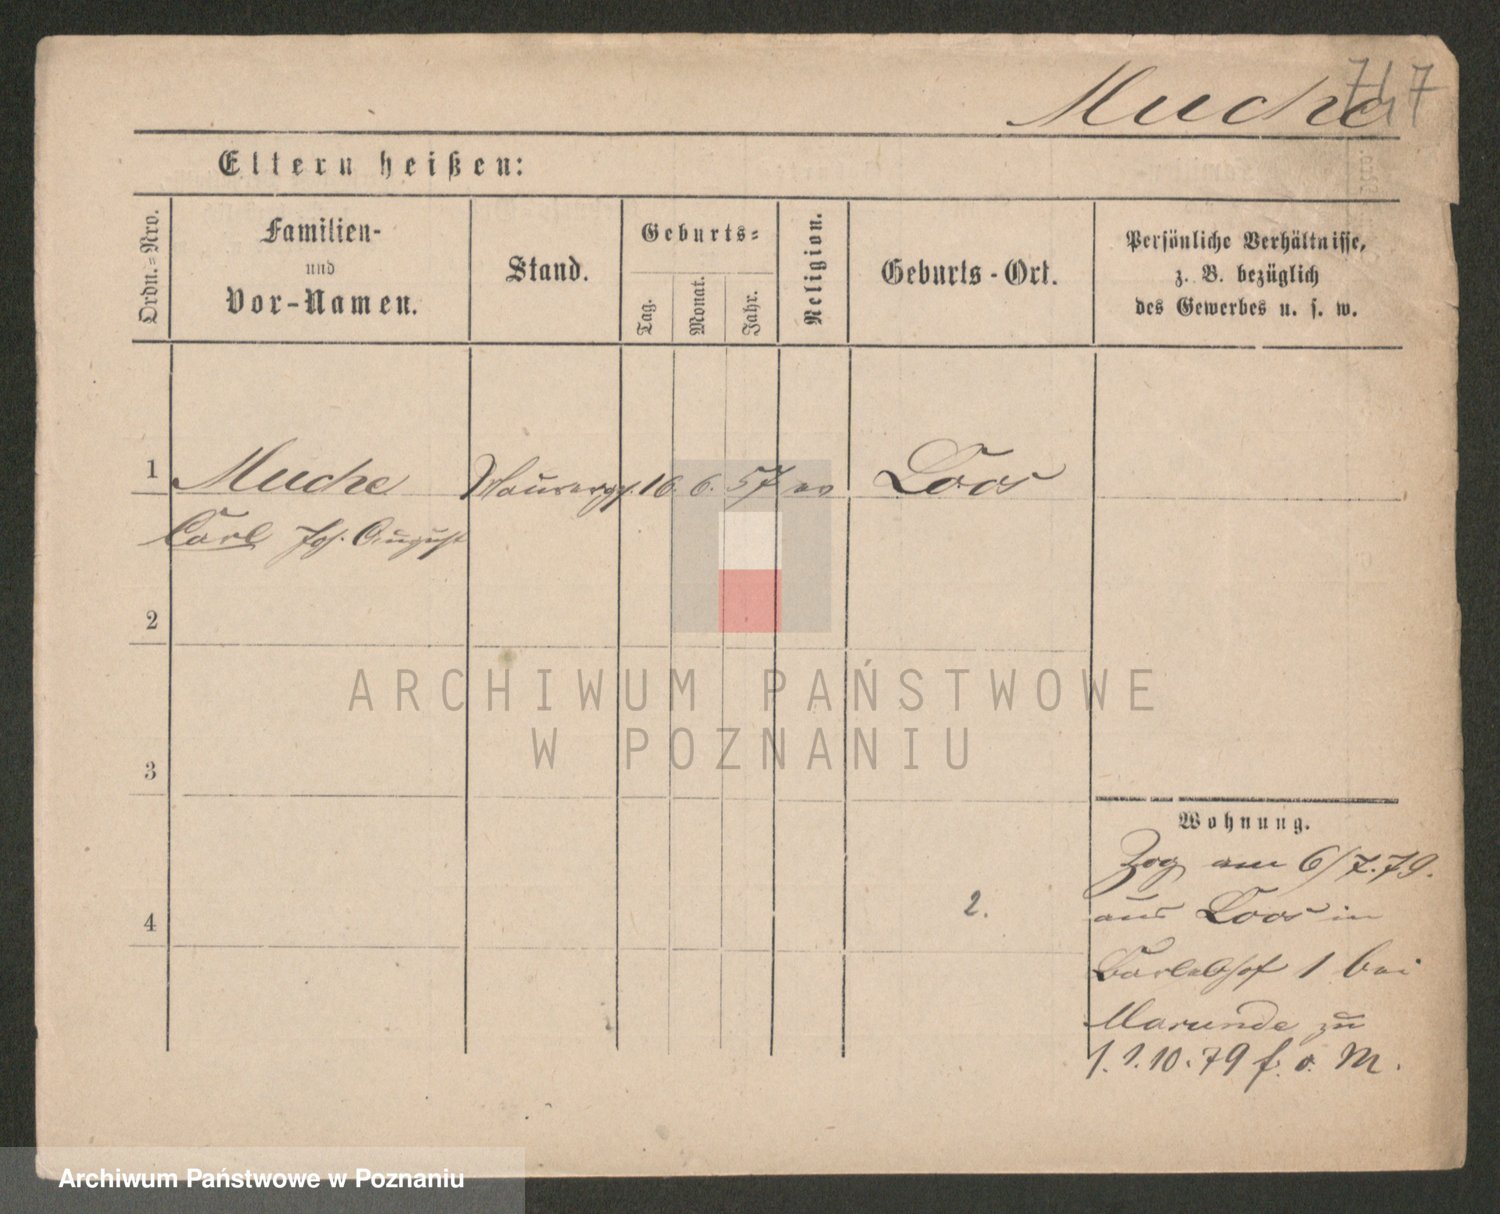 747
Muche
Eltern heißen:
Ordn.=Nro.
Familien-
und
Vor-Namen.
Stand.
Geburts=
Tag.
Monat.
Jahr.
Religion.
Geburts-Ort.
Persönliche Verhältnisse,
z. B. bezüglich
des Gewerbes u. s. w.
1 Muche Maurergs. 16. 6. 57 ev Loos
Carl Jos. August
2
3
4
2.
Wohnung.
Zog am 6/7.79.
aus Loos in
1 bei
Marunde zu
1.1.10.79 f. o. M.
ARCHIWUM PAŃSTWOWE
W POZNANIU
Archiwum Państwowe w Poznaniu